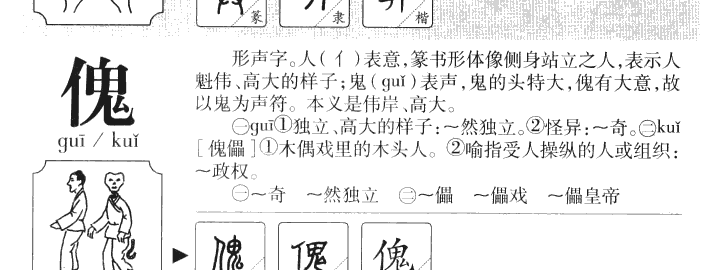 篆 隶 楷
傀
guī / kuǐ
形声字。人(亻)表意,篆书形体像侧身站立之人,表示人
魁伟、高大的样子;鬼(guǐ)表声,鬼的头特大,傀有大意,故
以鬼为声符。本义是伟岸、高大。
㊀guī①独立、高大的样子:～然独立。②怪异:～奇。㊁kuǐ
[傀儡]①木偶戏里的木头人。②喻指受人操纵的人或组织:
～政权。
㊀～奇 ～然独立 ㊁～儡 ～儡戏 ～儡皇帝
傀 傀 傀